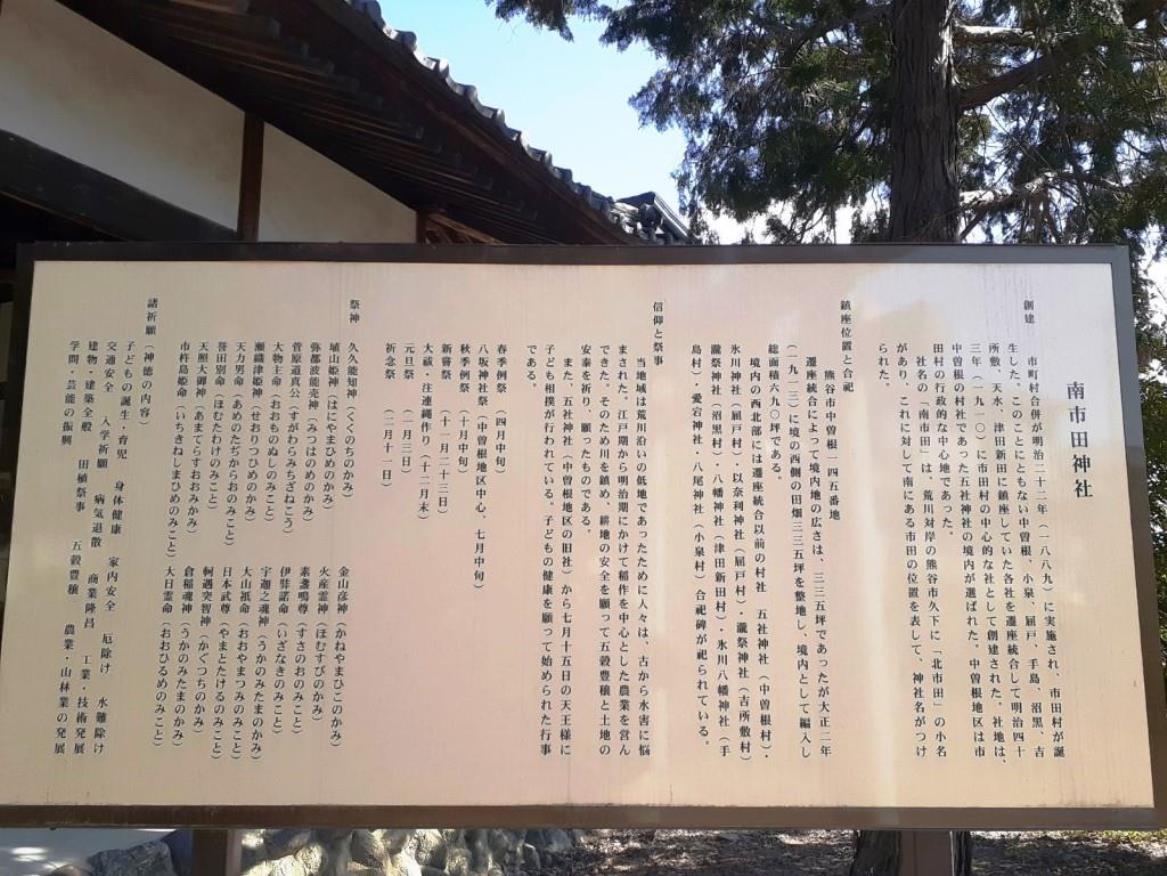 南市田神社
創建
市町村合併が明治二十二年（一八八九）に実施され、市田村が誕
生した。このことにともない中曽根、小泉、屈戸、手島、沼黒、吉
所敷、天水、津田新田に鎮座していた各社を遷座統合して明治四十
三年（一九一〇）に市田村の中心的な社として創建された。社地は、
中曽根の村社であった五社神社の境内が選ばれた。中曽根地区は市
田村の行政的な中心地であった。
社名の「南市田」は、荒川対岸の熊谷市久下に「北市田」の小名
があり、これに対して南にある市田の位置を表して、神社名がつけ
られた。
鎮座位置と合祀
熊谷市中曽根一四五番地
遷座統合によって境内地の広さは、三三五坪であったが大正二年
（一九一三）に境の西側の田畑三三五坪を整地し、境内として編入し
総面積六九〇坪である。
境内の西北部には遷座統合以前の村社　五社神社（中曽根村）・
氷川神社（屈戸村）・以奈利神社（屈戸村）・瀧祭神社（吉所敷村）
瀧祭神社（沼黒村）・八幡神社（津田新田村）・氷川八幡神社（手
島村）・愛宕神社・八尾神社（小泉村）合祀碑が祀られている。
信仰と祭事
当地域は荒川沿いの低地であったために人々は、古から水害に悩
まされた。江戸期から明治期にかけて稲作を中心とした農業を営ん
できた。そのため川を鎮め、耕地の安全を願って五穀豊穣と土地の
安泰を祈り、願ったものである。
また、五社神社（中曽根地区の旧社）から七月十五日の天王様に
子ども相撲が行われている。子どもの健康を願って始められた行事
である。
春季例祭　（四月中旬）
八坂神社祭（中曽根地区中心、七月中旬）
秋季例祭　（十月中旬）
新嘗祭　（十一月二十三日）
大祓・注連縄作り（十二月末）
元旦祭　（一月三日）
祈念祭　（二月十一日）
祭神　久久能知神（くくのちのかみ）　金山彦神（かねやまひこのかみ）
埴山姫神（はにやまひめのかみ）　火産霊神（ほむすびのかみ）
弥都波能売神（みつはのめのかみ）　素盞鳴尊（すさのおのみこと）
菅原道真公（すがわらみちざねこう）　伊弉諾命（いざなきのみこと）
大物主命（おおものぬしのみこと）　宇迦之魂神（うかのみたまのかみ）
瀬織津姫神（せおりつひめのかみ）　大山祇命（おおやまつみのみこと）
天力男命（あめのたぢからおのみこと）　日本武尊（やまとたけるのみこと）
誉田別命（ほむたわけのみこと）　軻遇突智神（かぐつちのかみ）
天照大御神（あまてらすおおみかみ）　倉稲魂神（うかのみたまのかみ）
市杵島姫命（いちきしまひめのみこと）　大日霊命（おおひるめのみこと）
諸祈願（神徳の内容）
子どもの誕生・育児　身体健康　家内安全　厄除け　水難除け
交通安全　入学祈願　病気退散　商業隆昌　工業・技術発展
建物・建築全般　田植祭事　五穀豊穣　農業・山林業の発展
学問・芸能の振興